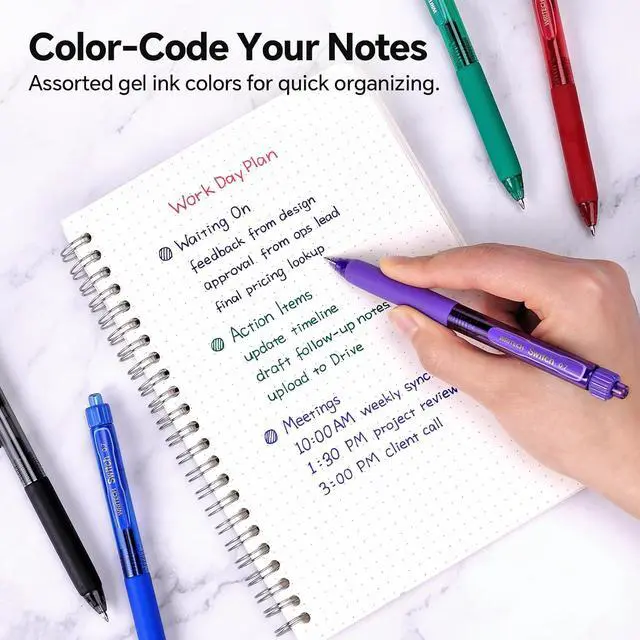 Color-Code Your Notes
Assorted gel ink colors for quick organizing.
Work Day Plan
Waiting On
feedback from design
approval from ops lead
final pricing lookup
Action Items
update timeline
draft follow-up notes
upload to Drive
Meetings
10:00 AM weekly sync
1:30 PM project review
3:00 PM client call
Switch
Switch